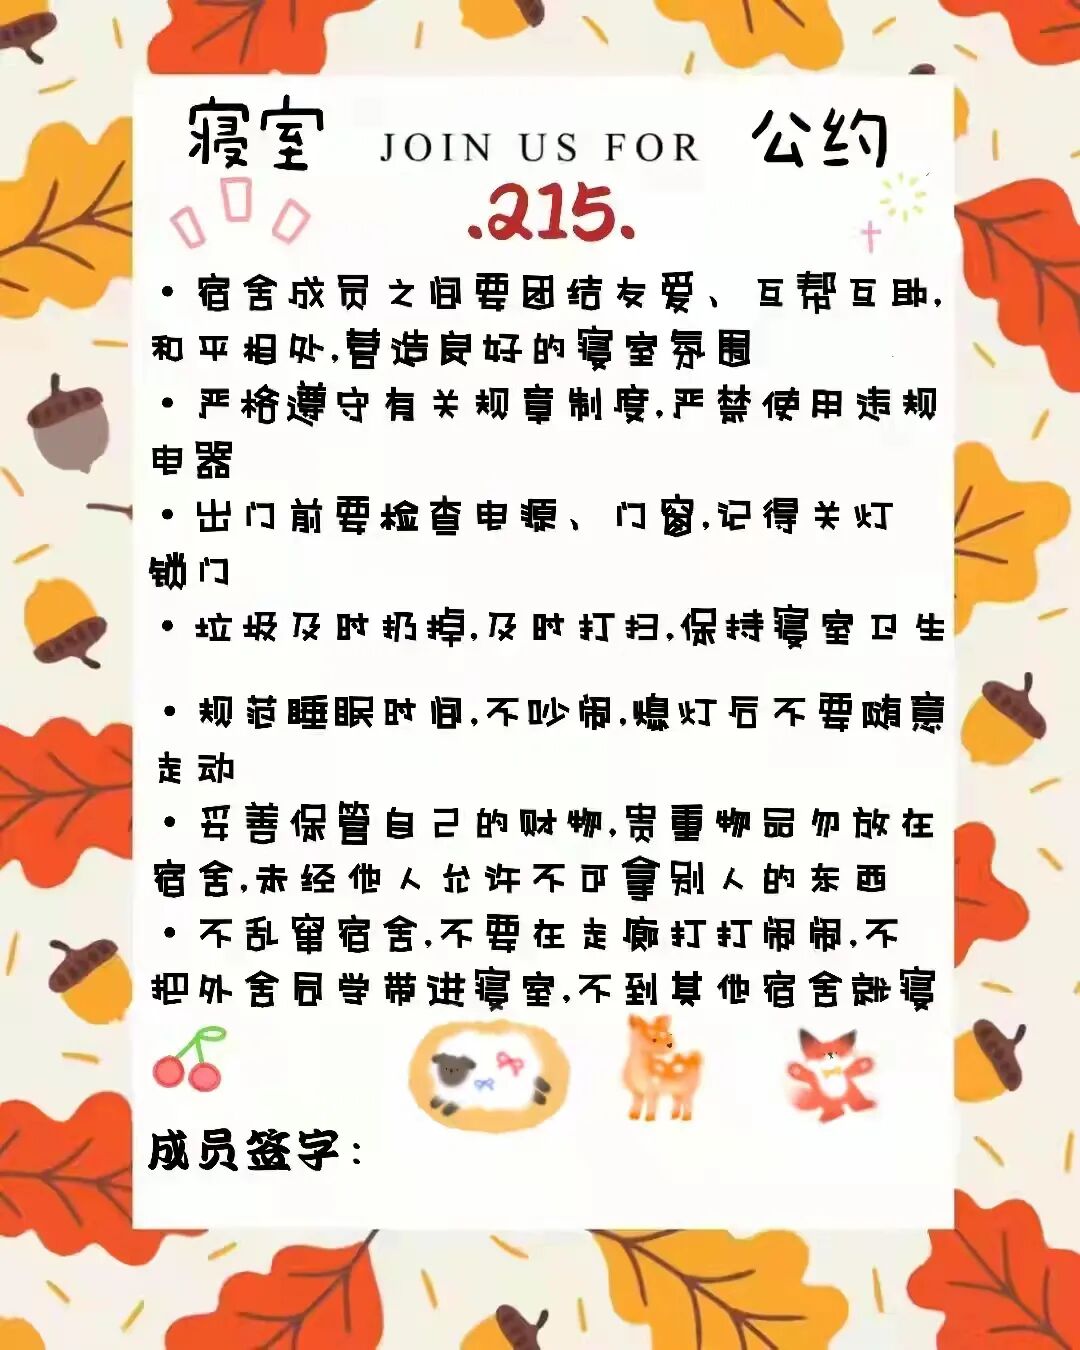 寝室 JOIN US FOR 公约
.215.
·宿舍成员之间要团结友爱、互帮互助,
和平相处,营造良好的寝室氛围
·严格遵守有关规章制度,严禁使用违规
电器
·出门前要检查电源、门窗,记得关灯
锁门
·垃圾及时扔掉,及时打扫,保持寝室卫生
·规范睡眠时间,不吵闹,熄灯后不要随意
走动
·妥善保管自己的财物,贵重物品勿放在
宿舍,未经他人允许不可拿别人的东西
·不乱窜宿舍,不要在走廊打打闹闹,不
把外舍同学带进寝室,不到其他宿舍就寝
成员签字: